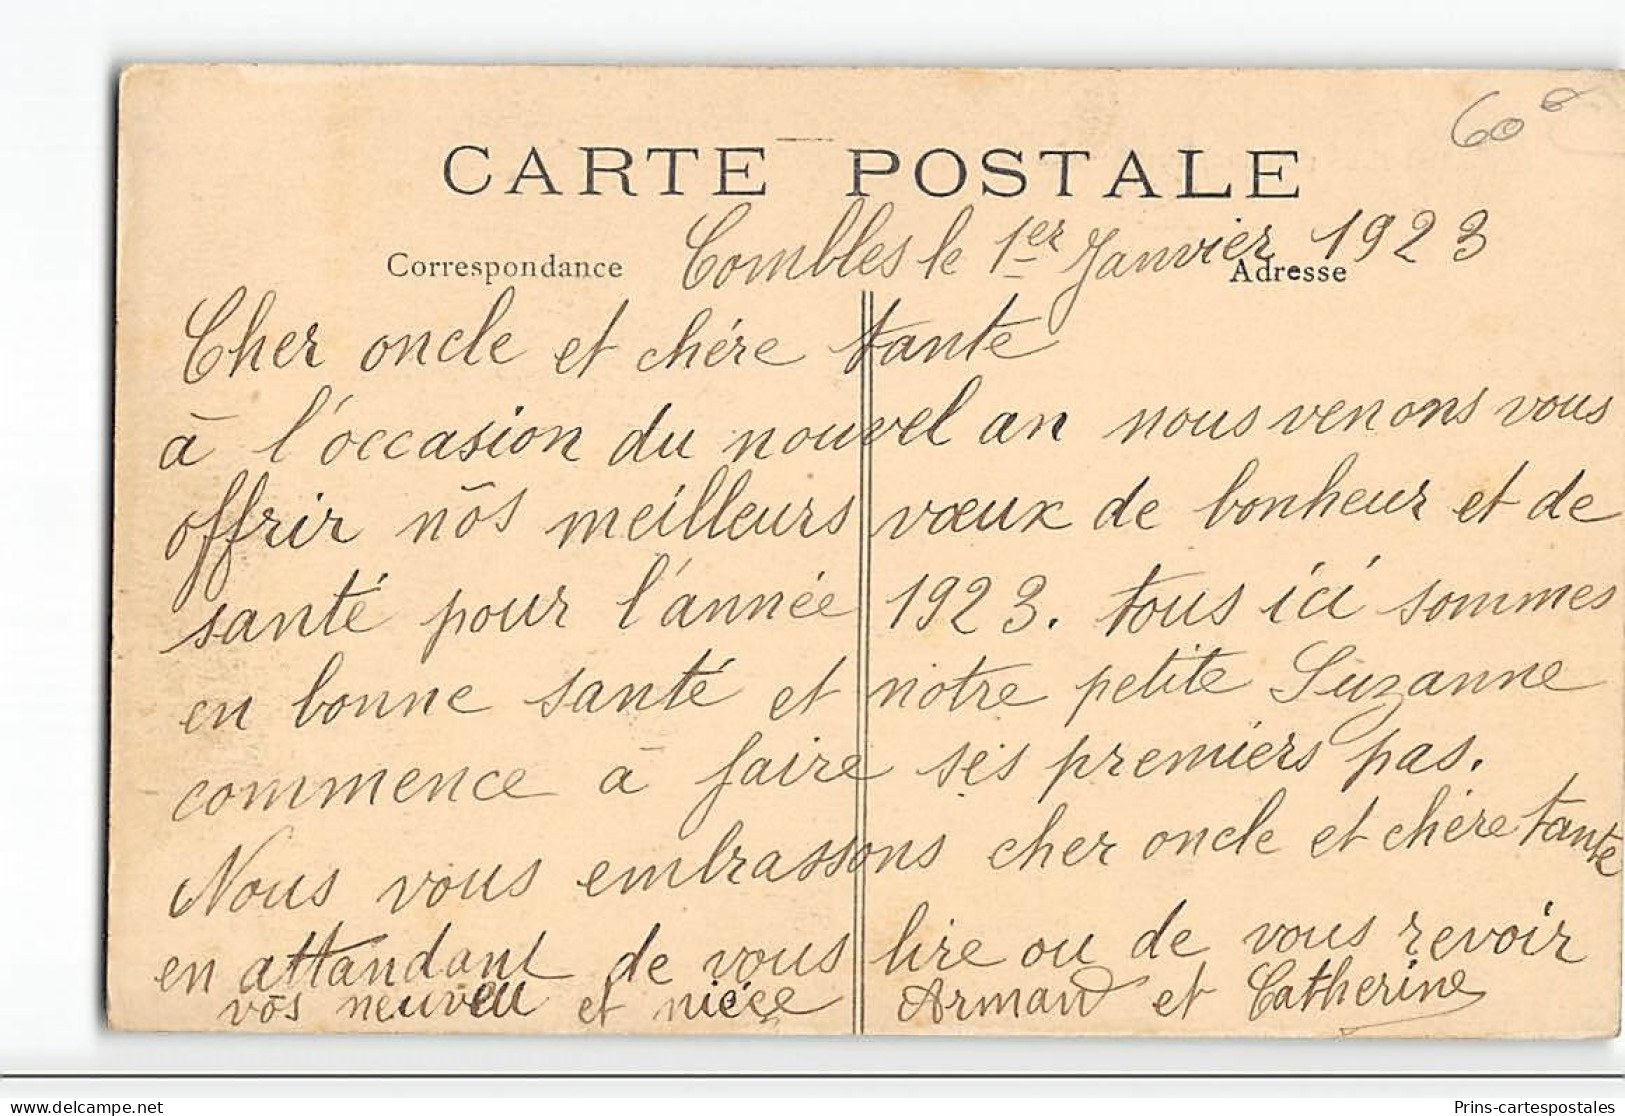 60
CARTE POSTALE
Correspondance
Adresse
Combles le 1er Janvier 1923
Cher oncle et chére tante
à l'occasion du nouvel an nous venons vous
offrir nôs meilleurs vœux de bonheur et de
santé pour l'année 1923. tous ici sommes
en bonne santé et notre petite Suzanne
commence à faire ses premiers pas.
Nous vous embrassons cher oncle et chére tante
en attandant de vous lire ou de vous revoir
vôs neuveu et niéçe Armand et Catherine
Prins-cartespostales